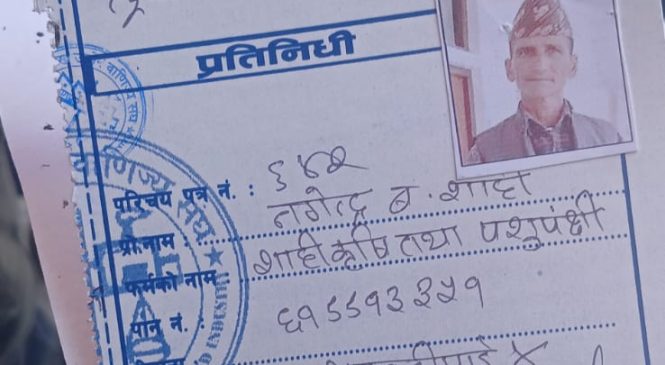 प्रतिनिधी
परिचय पत्र नं. : ६४२
प्रो.नाम : नगेन्द्र ब. शाही
फर्मको नाम शाही कृषि तथा पशुपंक्षी
पान नं. : ६१५५१३३५१
वाणिज्य संघ